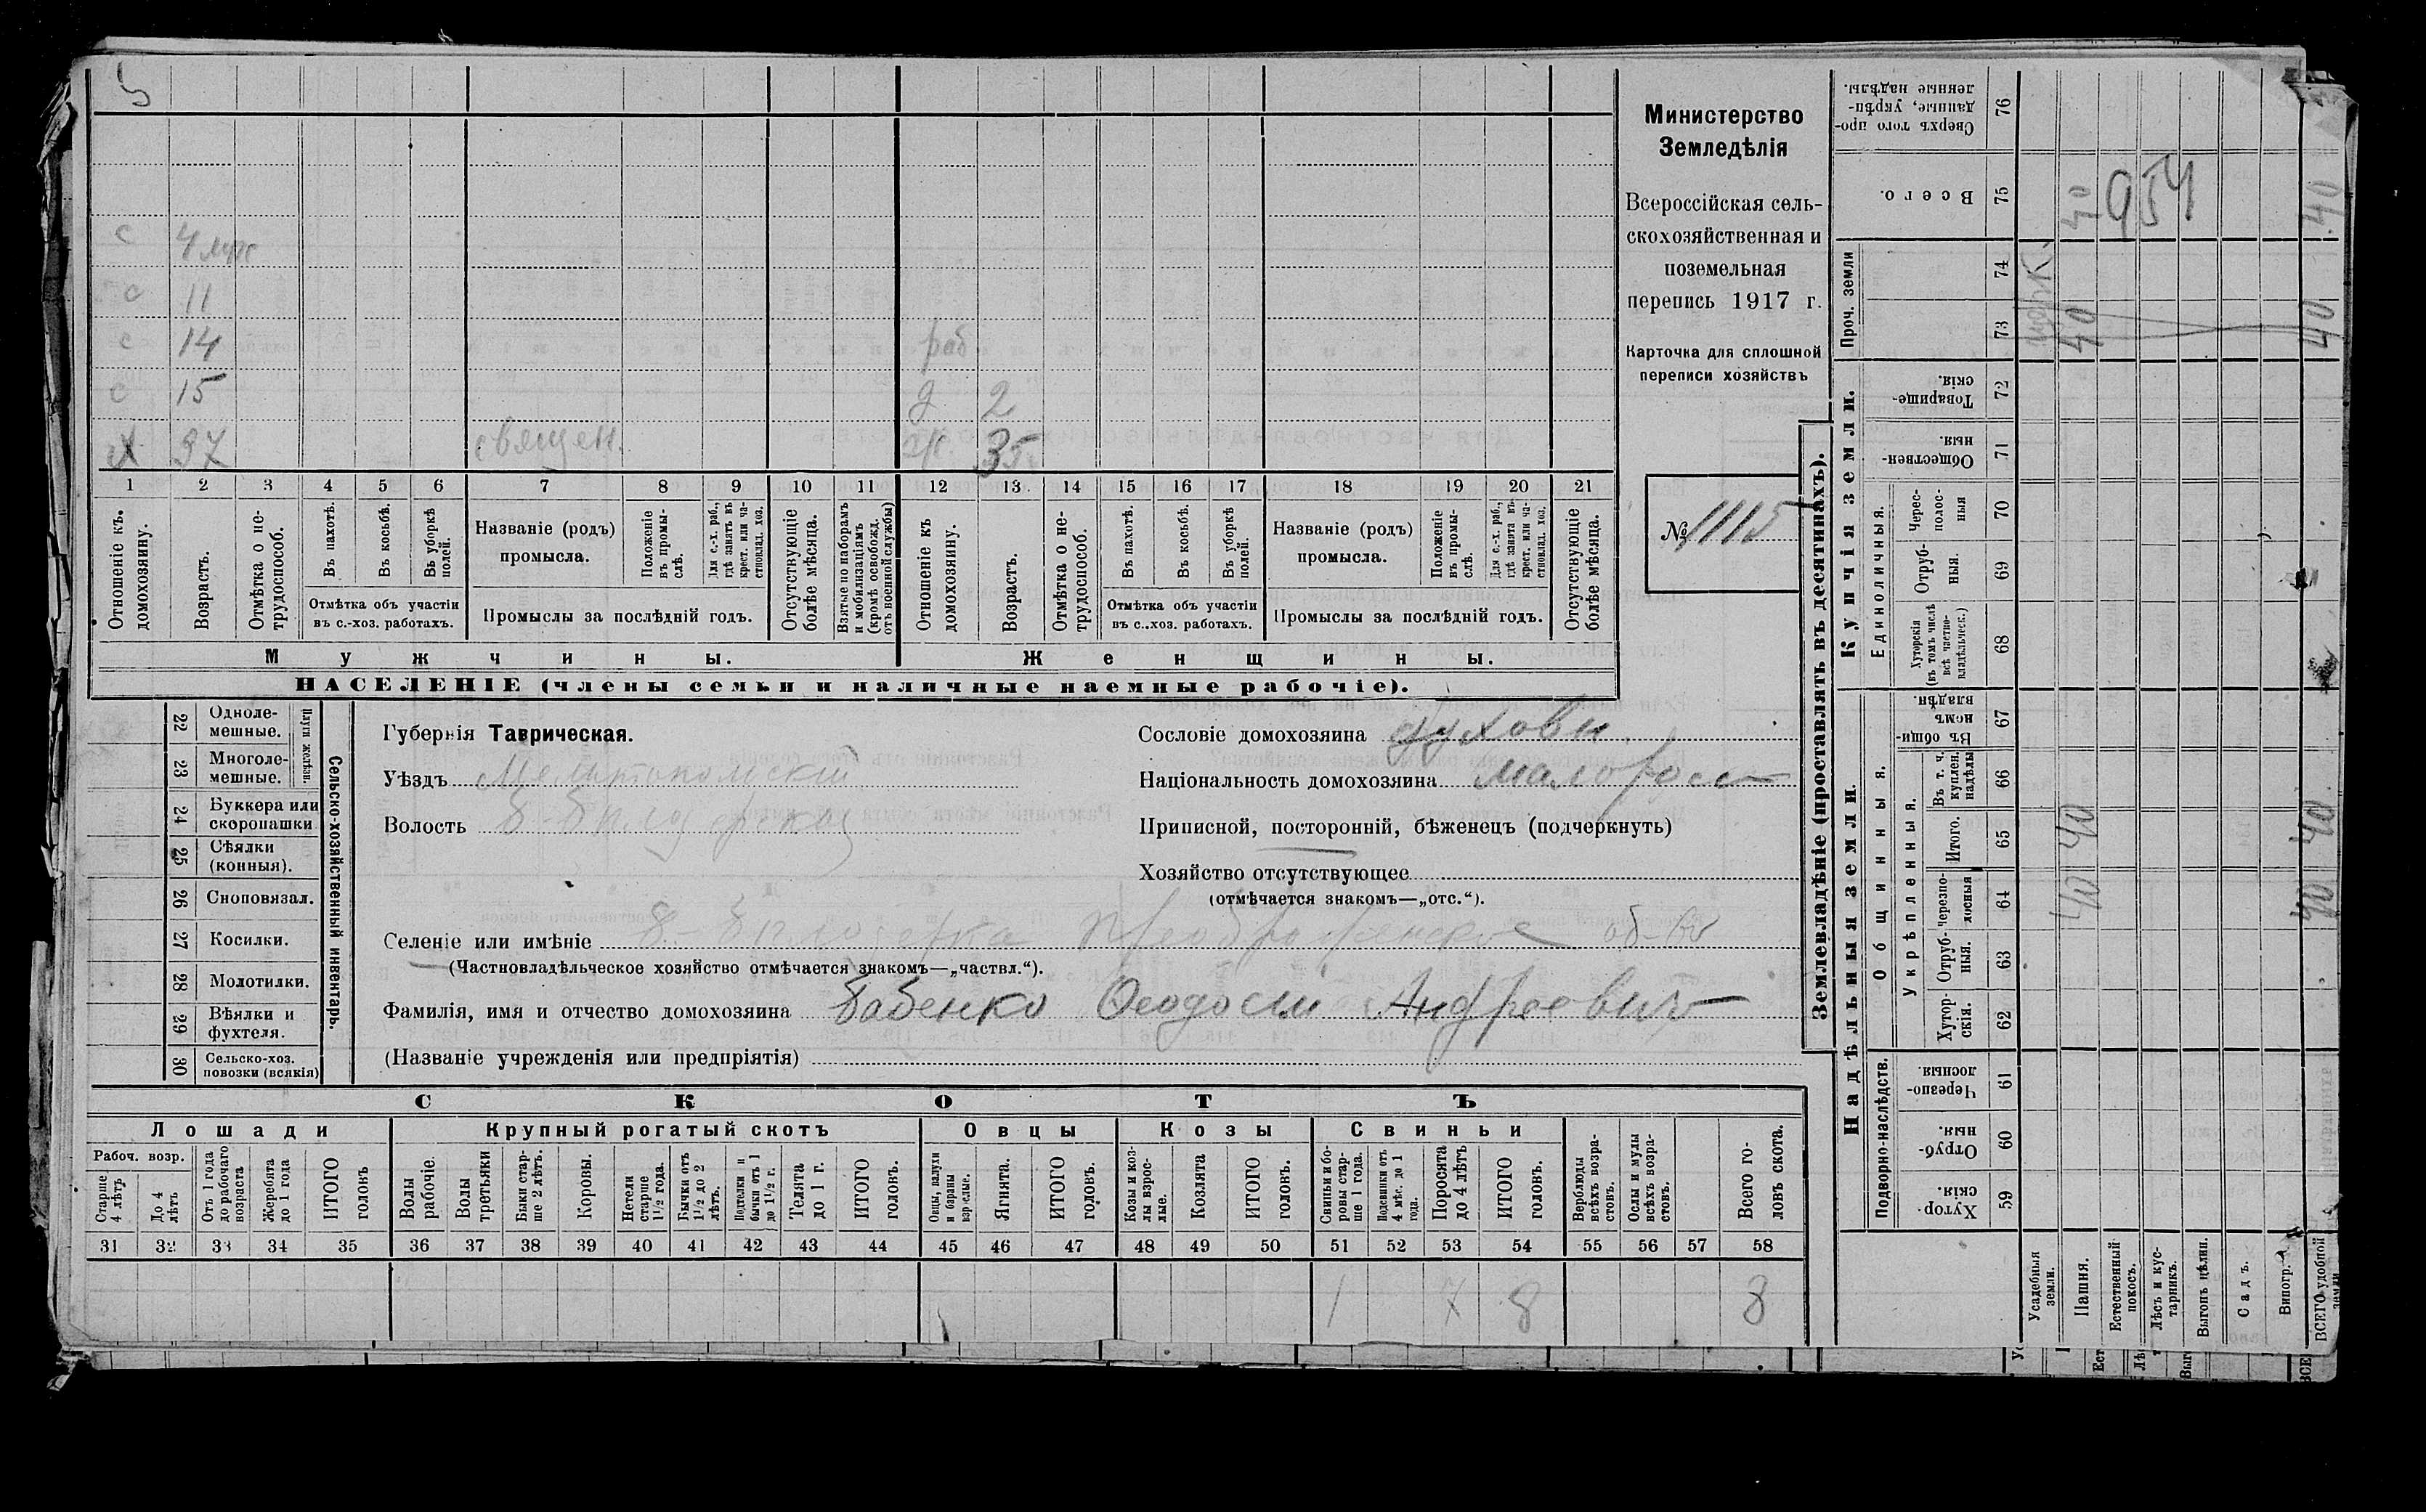 5
с 4 мус
с 11
с 14 раб
с 15 д 2
х 37 священ. ж. 35
1 2 3 4 5 6 7 8 9 10 11 12 13 14 15 16 17 18 19 20 21
Отношеніе къ домохозяину.
Возрастъ.
Отмѣтка о не-трудоспособ.
Въ пахотѣ.
Въ косьбѣ.
Въ уборкѣ полей.
Отмѣтка объ участіи
въ с.-хоз. работахъ.
Названіе (родъ)
промысла.
Положеніе въ промы-слѣ.
Для с.-х. раб., гдѣ занятъ въ крест. или ча-стновлад. хоз.
Промыслы за послѣдній годъ.
Отсутствующіе болѣе мѣсяца.
Взятые по наборамъ и мобилизаціямъ (кромѣ освобожд. отъ военной службы)
Отношеніе къ домохозяину.
Возрастъ.
Отмѣтка о не-трудоспособ.
Въ пахотѣ.
Въ косьбѣ.
Въ уборкѣ полей.
Отмѣтка объ участіи
въ с..хоз. работахъ.
Названіе (родъ)
промысла.
Положеніе въ промы-слѣ.
Для с.-х. раб., гдѣ занятъ въ крест. или ча-стновлад. хоз.
Промыслы за послѣдній годъ.
Отсутствующіе болѣе мѣсяца.
Мужчины.
Женщины.
НАСЕЛЕНІЕ (члены семьи и наличные наемные рабочіе).
Министерство
Земледѣлія
Всероссійская сель-
скохозяйственная и
поземельная
перепись 1917 г.
Карточка для сплошной
переписи хозяйствъ
№ 1115
Сельско-хозяйственный инвентарь.
Плуги желѣзн.
22 Одноле-мешные.
23 Многоле-мешные.
24 Буккера или скоропашки
25 Сѣялки (конныя).
26 Сноповязал.
27 Косилки.
28 Молотилки.
29 Вѣялки и фухтеля.
30 Сельско-хоз. повозки (всякія)
Губернія Таврическая.
Уѣздъ Мелитопольскій
Волость Б-Бѣлозерская
Сословіе домохозяина духовн.
Національность домохозяина малоросс
Приписной, посторонній, бѣженецъ (подчеркнуть)
Хозяйство отсутствующее
(отмѣчается знакомъ—„отс.“).
Селеніе или имѣніе Б-Бѣлозерка Преображенское об-во
(Частновладѣльческое хозяйство отмѣчается знакомъ—„частвл.“).
Фамилія, имя и отчество домохозяина Бабенко Ѳеодосій Андреевичъ
(Названіе учрежденія или предпріятія)
СКОТЪ
Лошади
Крупный рогатый скотъ
Овцы
Козы
Свиньи
Рабоч. возр.
Старше 4 лѣтъ
До 4 лѣтъ
Отъ 1 года до рабочаго возраста
Жеребята до 1 года
ИТОГО головъ
Волы рабочіе.
Волы третьяки
Быки стар-ше 2 лѣтъ.
Коровы.
Нетели старше 1½ года.
Бычки отъ 1½ до 2 лѣтъ.
Подтелки и бычки отъ 1 до 1½ г.
Телята до 1 г.
ИТОГО головъ.
Овцы, валухи и бараны взрослые.
Ягнята.
ИТОГО головъ.
Козы и коз-лы взрос-лые.
Козлята
ИТОГО головъ.
Свиньи и бо-ровы стар-ше 1 года.
Подсвинки отъ 4 мѣс. до 1 года.
Поросята до 4 лѣтъ
ИТОГО головъ.
Верблюды всѣхъ возра-стовъ.
Ослы и мулы всѣхъ возра-стовъ.
Всего го-ловъ скота.
31 32 33 34 35 36 37 38 39 40 41 42 43 44 45 46 47 48 49 50 51 52 53 54 55 56 57 58
1 7 8 8
Землевладѣніе (проставлять въ десятинахъ).
Надѣльныя земли.
Купчія земли.
Проч. земли
Подворно-наслѣдств.
Общинныя.
Укрѣпленныя.
Единоличныя.
Сверхъ того про-данные, укрѣп-ленные надѣлы. 76
Всего. 75 40 954 40
74 церк.
73 40 40
Товарище-скія. 72
Обществен-ныя. 71
Черес-полос-ныя 70
Отруб-ныя. 69
Хуторскія (въ томъ числѣ всѣ частно-владѣльческ.) 68
Въ общи-номъ владѣн. 67
Въ т. ч. куплен. надѣлы 66
Итого. 65 40 40
Черезпо-лосныя 64 40 40
Отруб-ныя. 63
Хутор-скія. 62
Черезпо-лосныя. 61
Отруб-ныя. 60
Хутор-скія. 59
Усадебныя земли.
Пашня.
Естественный покосъ.
Лѣсъ и кус-тарникъ.
Выгонъ цѣлин.
Садъ.
Виногр.
ВСЕГО удобной земли